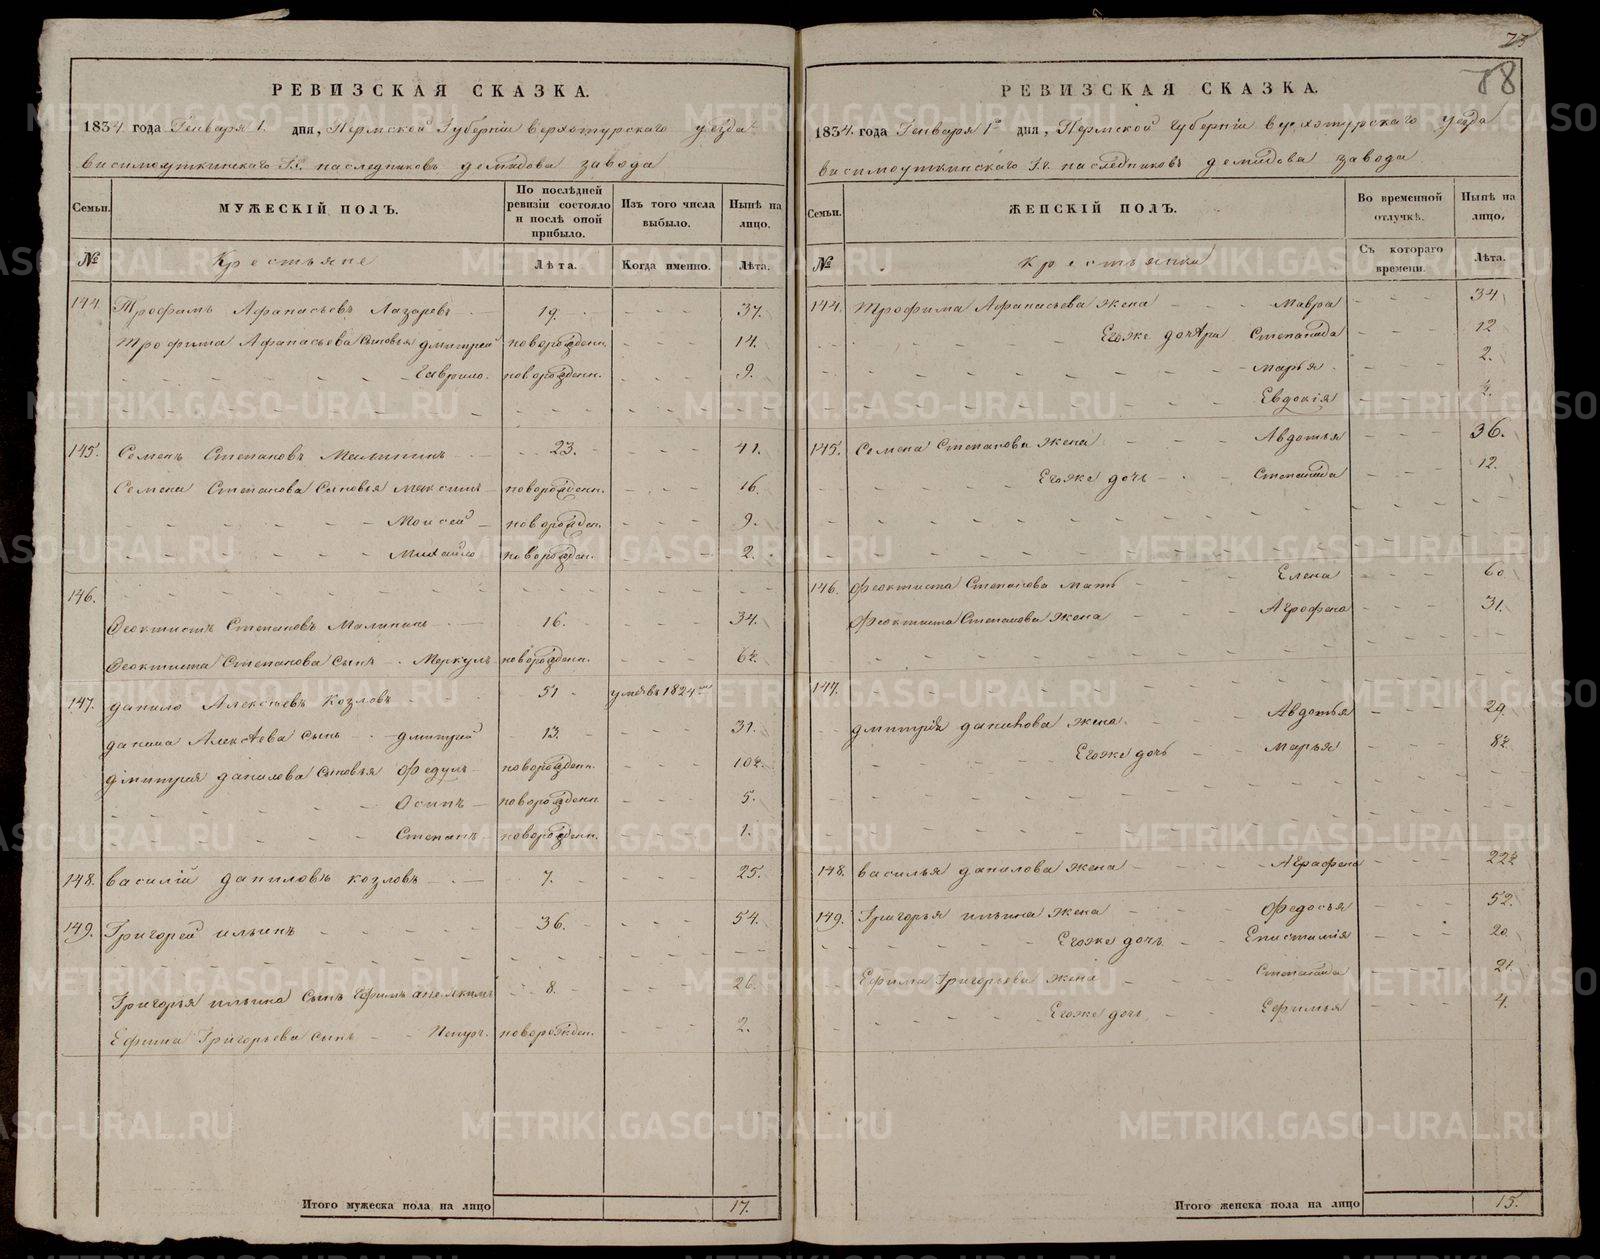 73
78
РЕВИЗСКАЯ СКАЗКА.
1834. года Генваря 1. дня, Пермской Губерніи верхотурскаго уезда
висимоуткинскаго Г.Г. наследниковъ демидова завода
Семьи. МУЖЕСКІЙ ПОЛЪ. По послѣдней ревизіи состояло и послѣ оной прибыло. Изъ того числа выбыло. Нынѣ на лицо.
№ Крестьяне Лѣта. Когда именно. Лѣта.
144. Трофимъ Афанасьевъ Лазаревъ 19. 37.
Трофима Афанасьева сыновья дмитрей новорожденн. 14.
Гаврило. новорожденн. 9.
145. Семенъ Степановъ Малининъ 23. 41.
Семена Степанова Сыновья максимъ новорожденн. 16.
Моисей новорожден. 9.
Михайло новорожден. 2.
146.
Феоктистъ Степановъ Малининъ 16. 34.
Феоктиста Степанова сынъ Меркулъ новорожденн. 6½
147. данило Алексѣевъ Козловъ 51 умеръ в 1824
данила Алексѣева сынъ дмитрий 13. 31.
дмитрия данилова Сыновья Федулъ новорожденн. 10½
Осипъ новорожденн 5.
Степанъ новорожденн. 1.
148. василий даниловъ козловъ 7. 25.
149. Григорей ильинъ 36. 54.
Григорья ильина сынъ Ефимъ 8. 26.
Ефима Григорьева сынъ новорожден. 2.
Итого мужеска пола на лицо 17.
РЕВИЗСКАЯ СКАЗКА.
1834. года Генваря 1го дня, Пермской губерніи верхотурскаго уезда
висимоуткинскаго Г.г. наследниковъ демидова завода
Семьи. ЖЕНСКІЙ ПОЛЪ. Во временной отлучкѣ. Нынѣ на лицо.
№ крестьянки Съ котораго времени. Лѣта.
144. Трофима Афанасьева жена Мавра 34
Егоже дочери Степанида 12
Марья 2.
Евдокія ½.
145. Семена Степанова жена Авдотья 36.
Егоже дочь Степанида 12.
146. Феоктиста Степанова мать Елена 60
Феоктиста Степанова жена Агрофена 31.
147.
дмитрія данилова жена Авдотья 29.
Егоже дочь Марья 8½
148. василья данилова жена Аграфена 22½
149. Григорья ильина жена Федосья 52.
Егоже дочь Епистимія 20
Ефима Григорьева жена Степанида 21.
Егоже дочь Ефимья 4.
Итого женска пола на лицо 15.
METRIKI.GASO-URAL.RU